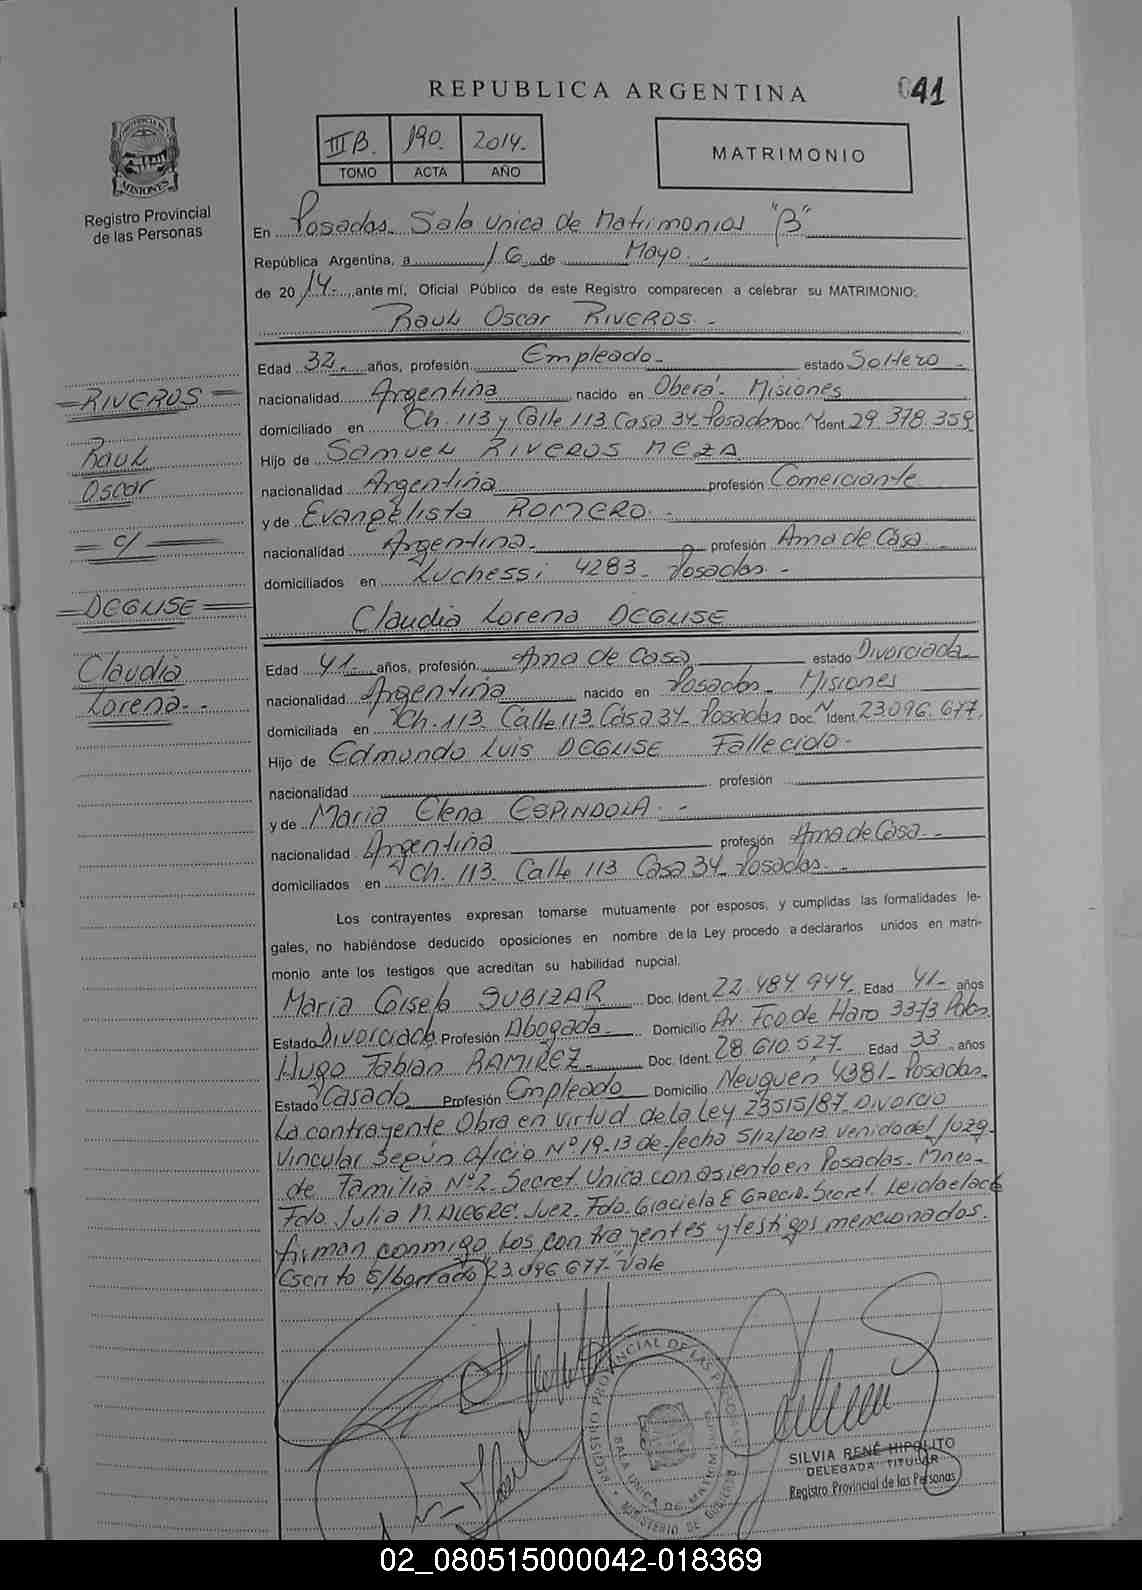 REPUBLICA ARGENTINA
041
PROVINCIA DE MISIONES
Registro Provincial
de las Personas
III B. 190. 2014.-
TOMO ACTA AÑO
MATRIMONIO
En Posadas. Sala Unica de Matrimonios "B"
República Argentina, a 16 de Mayo.
de 2014.-, ante mí, Oficial Público de este Registro comparecen a celebrar su MATRIMONIO:
Raul Oscar RIVEROS.-
Edad 32. años, profesión Empleado- estado Soltero-
nacionalidad Argentina nacido en Oberá- Misiones
domiciliado en Ch. 113 y Calle 113 Casa 34- Posadas Doc. N Ident. 29.378.359
Hijo de Samuel RIVEROS MEZA
nacionalidad Argentina profesión Comerciante
y de Evangelista ROMERO.-
nacionalidad Argentina- profesión Ama de Casa-
domiciliados en Luchessi 4283- Posadas-
Claudia Lorena DEGLISE
Edad 41- años, profesión Ama de Casa estado Divorciada
nacionalidad Argentina nacido en Posadas- Misiones
domiciliada en Ch. 113 Calle 113 Casa 34- Posadas Doc. N Ident. 23.096.677.
Hijo de Edmundo Luis DEGLISE Fallecido-
nacionalidad profesión
y de Maria Elena ESPINDOLA.-
nacionalidad Argentina profesión Ama de Casa-
domiciliados en Ch. 113. Calle 113 Casa 34- Posadas.-
Los contrayentes expresan tomarse mutuamente por esposos, y cumplidas las formalidades le-
gales, no habiéndose deducido oposiciones en nombre de la Ley procedo a declararlos unidos en matri-
monio ante los testigos que acreditan su habilidad nupcial.
Maria Gisela SUBIZAR Doc. Ident. 22.484.944- Edad 41- años
Estado Divorciada Profesión Abogada- Domicilio Av. Fco de Haro 3373 Pdas.
Hugo Fabian RAMIREZ- Doc. Ident. 28.610.527- Edad 33 años
Estado Casado Profesión Empleado Domicilio Neuquén 4381- Posadas.
La contrayente Obra en virtud de la Ley 23515/87- Divorcio
Vincular Según oficio Nº 19-13 de fecha 5/12/2013 venida del Juzg-
de Familia Nº 2- Secret Unica con asiento en Posadas- Mnes-
Fdo. Julia N. ALEGRE. Juez- Fdo. Graciela E GARCIA- Secret. Leida el acta
firman conmigo los contrayentes y testigos mencionados.
Escrito S/borrado "23.096.677-" Vale
RIVEROS
Raul
Oscar
c/
DEGLISE
Claudia
Lorena.-
REGISTRO PROVINCIAL DE LAS PERSONAS
SALA UNICA DE MATRIM
MINISTERIO DE GOBIERNO
SILVIA RENÉ HIPOLITO
DELEGADA TITULAR
Registro Provincial de las Personas
02_080515000042-018369